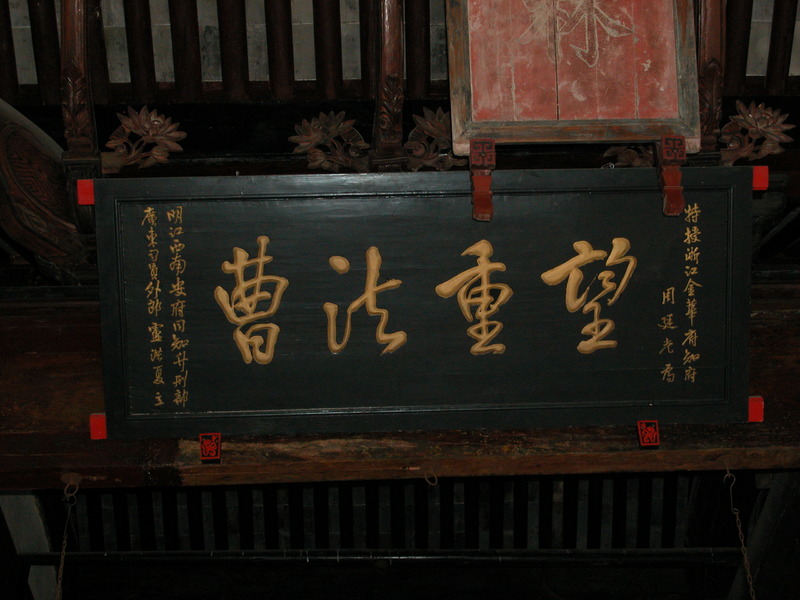 特授浙江金華府知府
周廷光為
望重法曹
明江西南安府同知升刑部
廣東司員外郎盧洪夏立